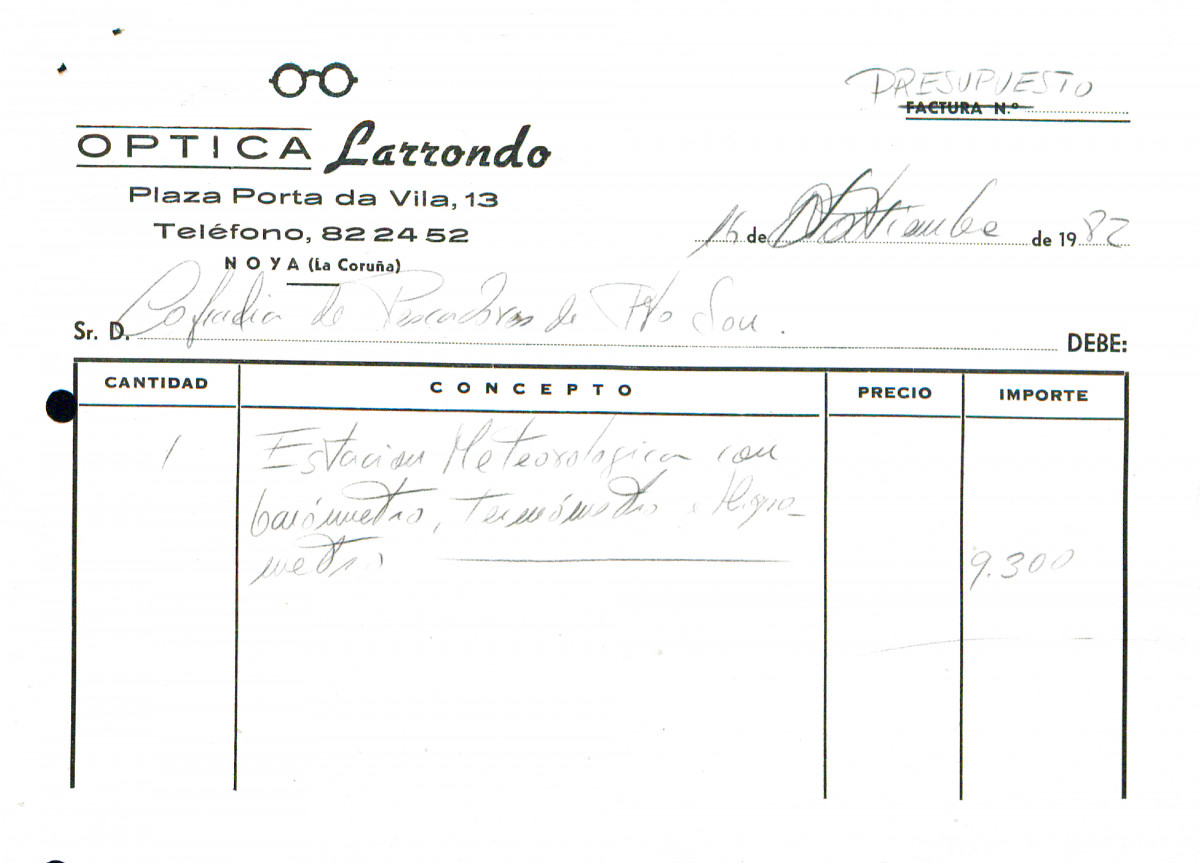 PRESUPUESTO
FACTURA N.º
OPTICA Larrondo
Plaza Porta da Vila, 13
Teléfono, 82 24 52
NOYA (La Coruña)
de de 1982
Sr. D. Cofradia de Pescadores de Pto Son.
DEBE:
CANTIDAD CONCEPTO PRECIO IMPORTE
1 Estacion Meteorologica con
barómetro, termómetro e Higro-
metro 9.300